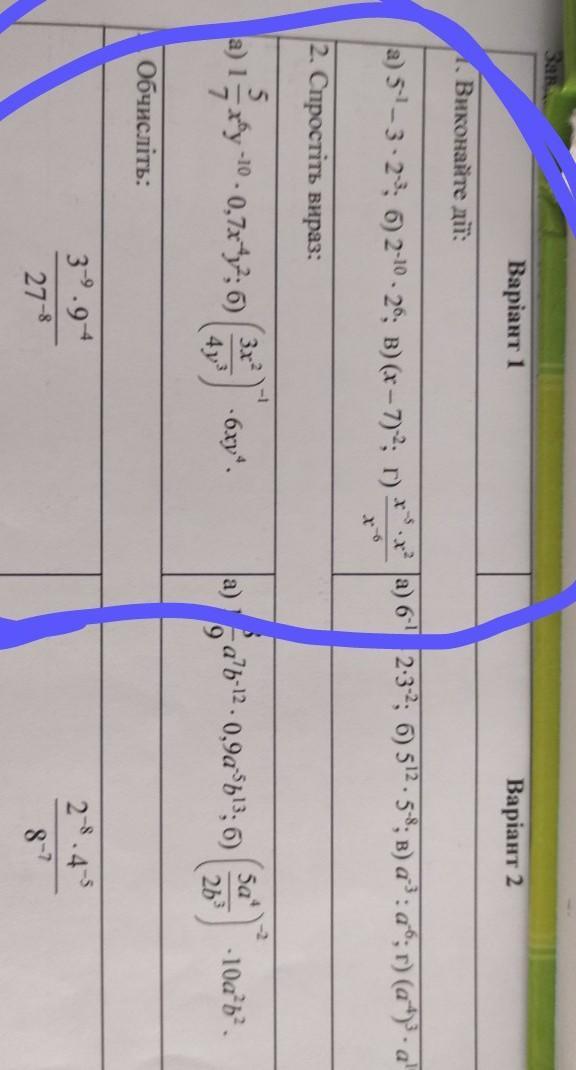 Варіант 1 Варіант 2
1. Виконайте дії:
а) 5⁻¹ – 3 · 2⁻³; б) 2⁻¹⁰ · 2⁶; в) (x – 7)⁻²; г) x⁻⁵ · x² / x⁻⁶
а) 6⁻¹ 2·3⁻²; б) 5¹² · 5⁻⁸; в) a⁻³ : a⁻⁶; г) (a⁻⁴)³ · a
2. Спростіть вираз:
а) 1 5/7 x⁶y⁻¹⁰ · 0,7x⁻⁴y²; б) (3x² / 4y³)⁻¹ · 6xy⁴.
а) a⁷b⁻¹² · 0,9a⁻⁵b¹³; б) (5a⁴ / 2b³)⁻² · 10a²b².
Обчисліть:
3⁻⁹ · 9⁻⁴ / 27⁻⁸
2⁻⁸ · 4⁻⁵ / 8⁻⁷